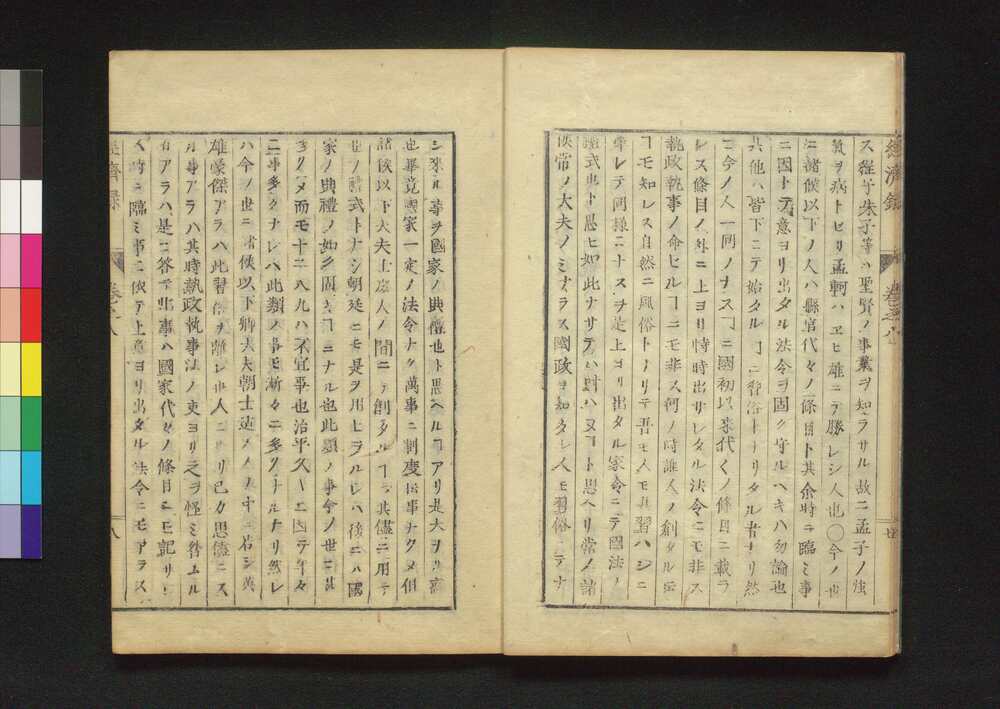 ス程子朱子等ハ聖賢ノ事業ヲ知ラサル故ニ孟子ノ強
氣ヲ病トセリ孟軻ハヱヒ雄ニテ勝レシ人也〇今ノ世
ニ諸侯以下ノ人ハ縣官代々ノ條目ト其余時ニ臨ミ事
ニ因ト意ヨリ出タル法令ヲ固ク守ルベキハ勿論也
其他ハ皆下ニテ始タルヿニ習俗トナリタル者ナリ然
ニ今ノ人一同ノナスヿニ國初以來代々ノ條目ニ載ラ
レス條目ノ外ニ上ヨリ時時出サレタル法令ニモ非ス
執政執事ノ命ヒルヿニモ非ス何ノ時誰人ノ創タル
ヿモ知レス自然ニ風俗トナリテ吾モ人モ其習ハシニ
テ同様ニナスヲ定上ヨリ出タル家令ニテ國法ノ
禮式也ト思ヒ如此ナサテハ對ハヌヿト思ヘリ常ノ諸
侯常ノ大夫ノミナラス國政ヲ知タレ人モ習俗ニテナ
經濟録
卷之八
廿
シ來ル事ヲ國家ノ典禮也ト思ヘルヿアリ是大ヲリ
也畢竟國家一定ノ法令ナク萬事ニ制度ナクメ但
諸侯以下大夫士庶人ノ間ニテ創タルヿヲ其儘ニ用テ
世ノ禮式トナシ朝廷ニモ是ヲ用ヒラルレハ後ニハ國
家ノ典禮ノ如ク固キヿニナル也此類ノ事今ノ世ニ甚
多クメ而モ十ニ八九ハ不宜事也治平久シキニ因テ年々
ニ事多クナレハ此類ノ事モ漸々ニ多クナルナリ然レ
ハ今ノ世ニ諸侯以下卿大夫朝士迠ノ人ノ中ニ若シ英
雄豪傑アラハ此習俗ヲ離レ出人ニナリ己カ思儘ニス
ル事アラハ其時執政執事法ノ吏ヨリ之ヲ怪ミ咎ムル
有アラハ是ニ答テ此事ハ國家代々ノ條目ニモ記サ
ス時ニ臨ミ事ニ依テ上意ヨリ出タル法令ニモアラス
經濟録
卷之八